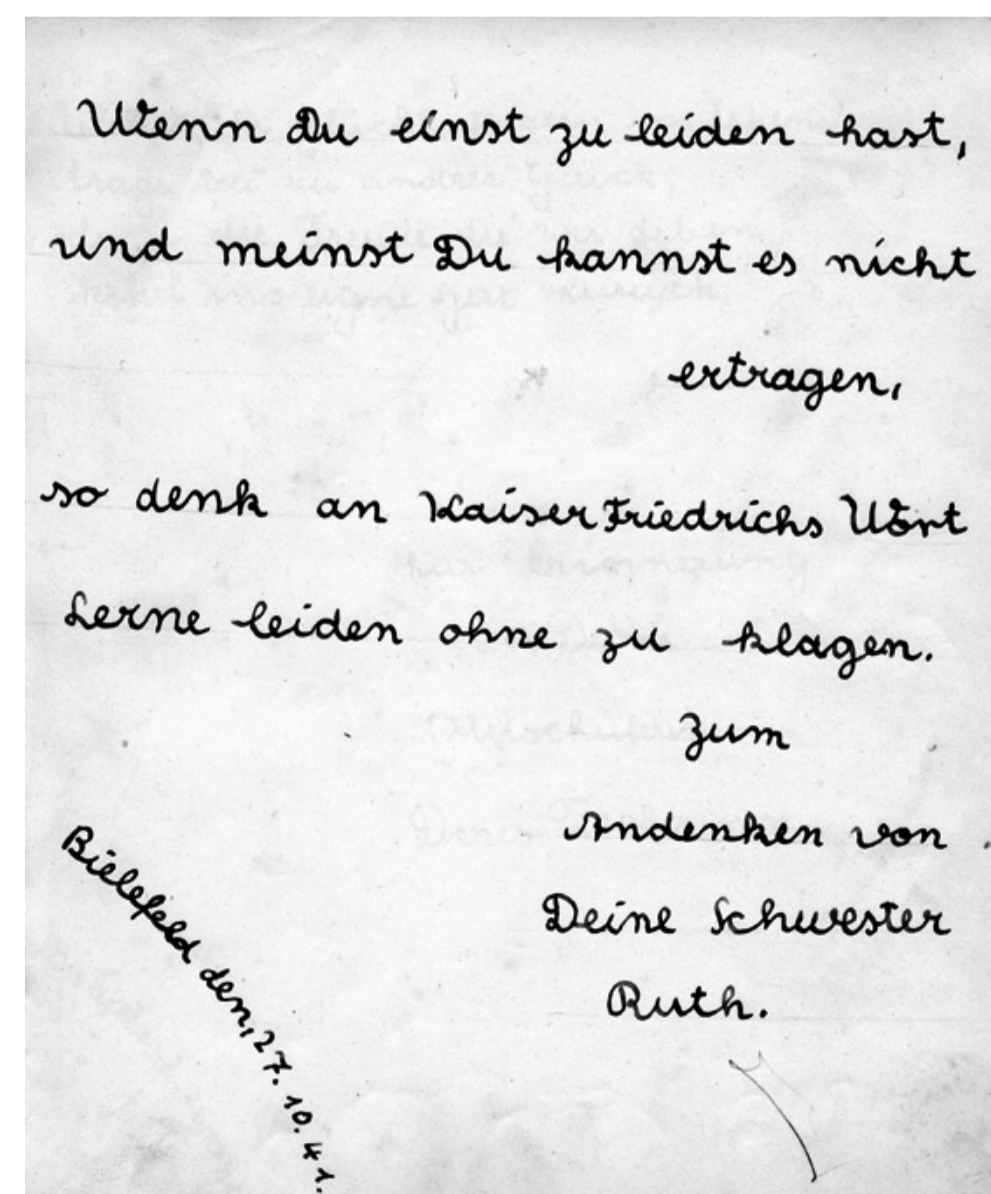 Wenn Du einst zu leiden hast,
und meinst Du kannst es nicht
ertragen,
so denk an Kaiser Friedrichs Wort
Lerne leiden ohne zu klagen.
Zum
Andenken von
Deine Schwester
Ruth.
Bielefeld den, 27. 10. 41.